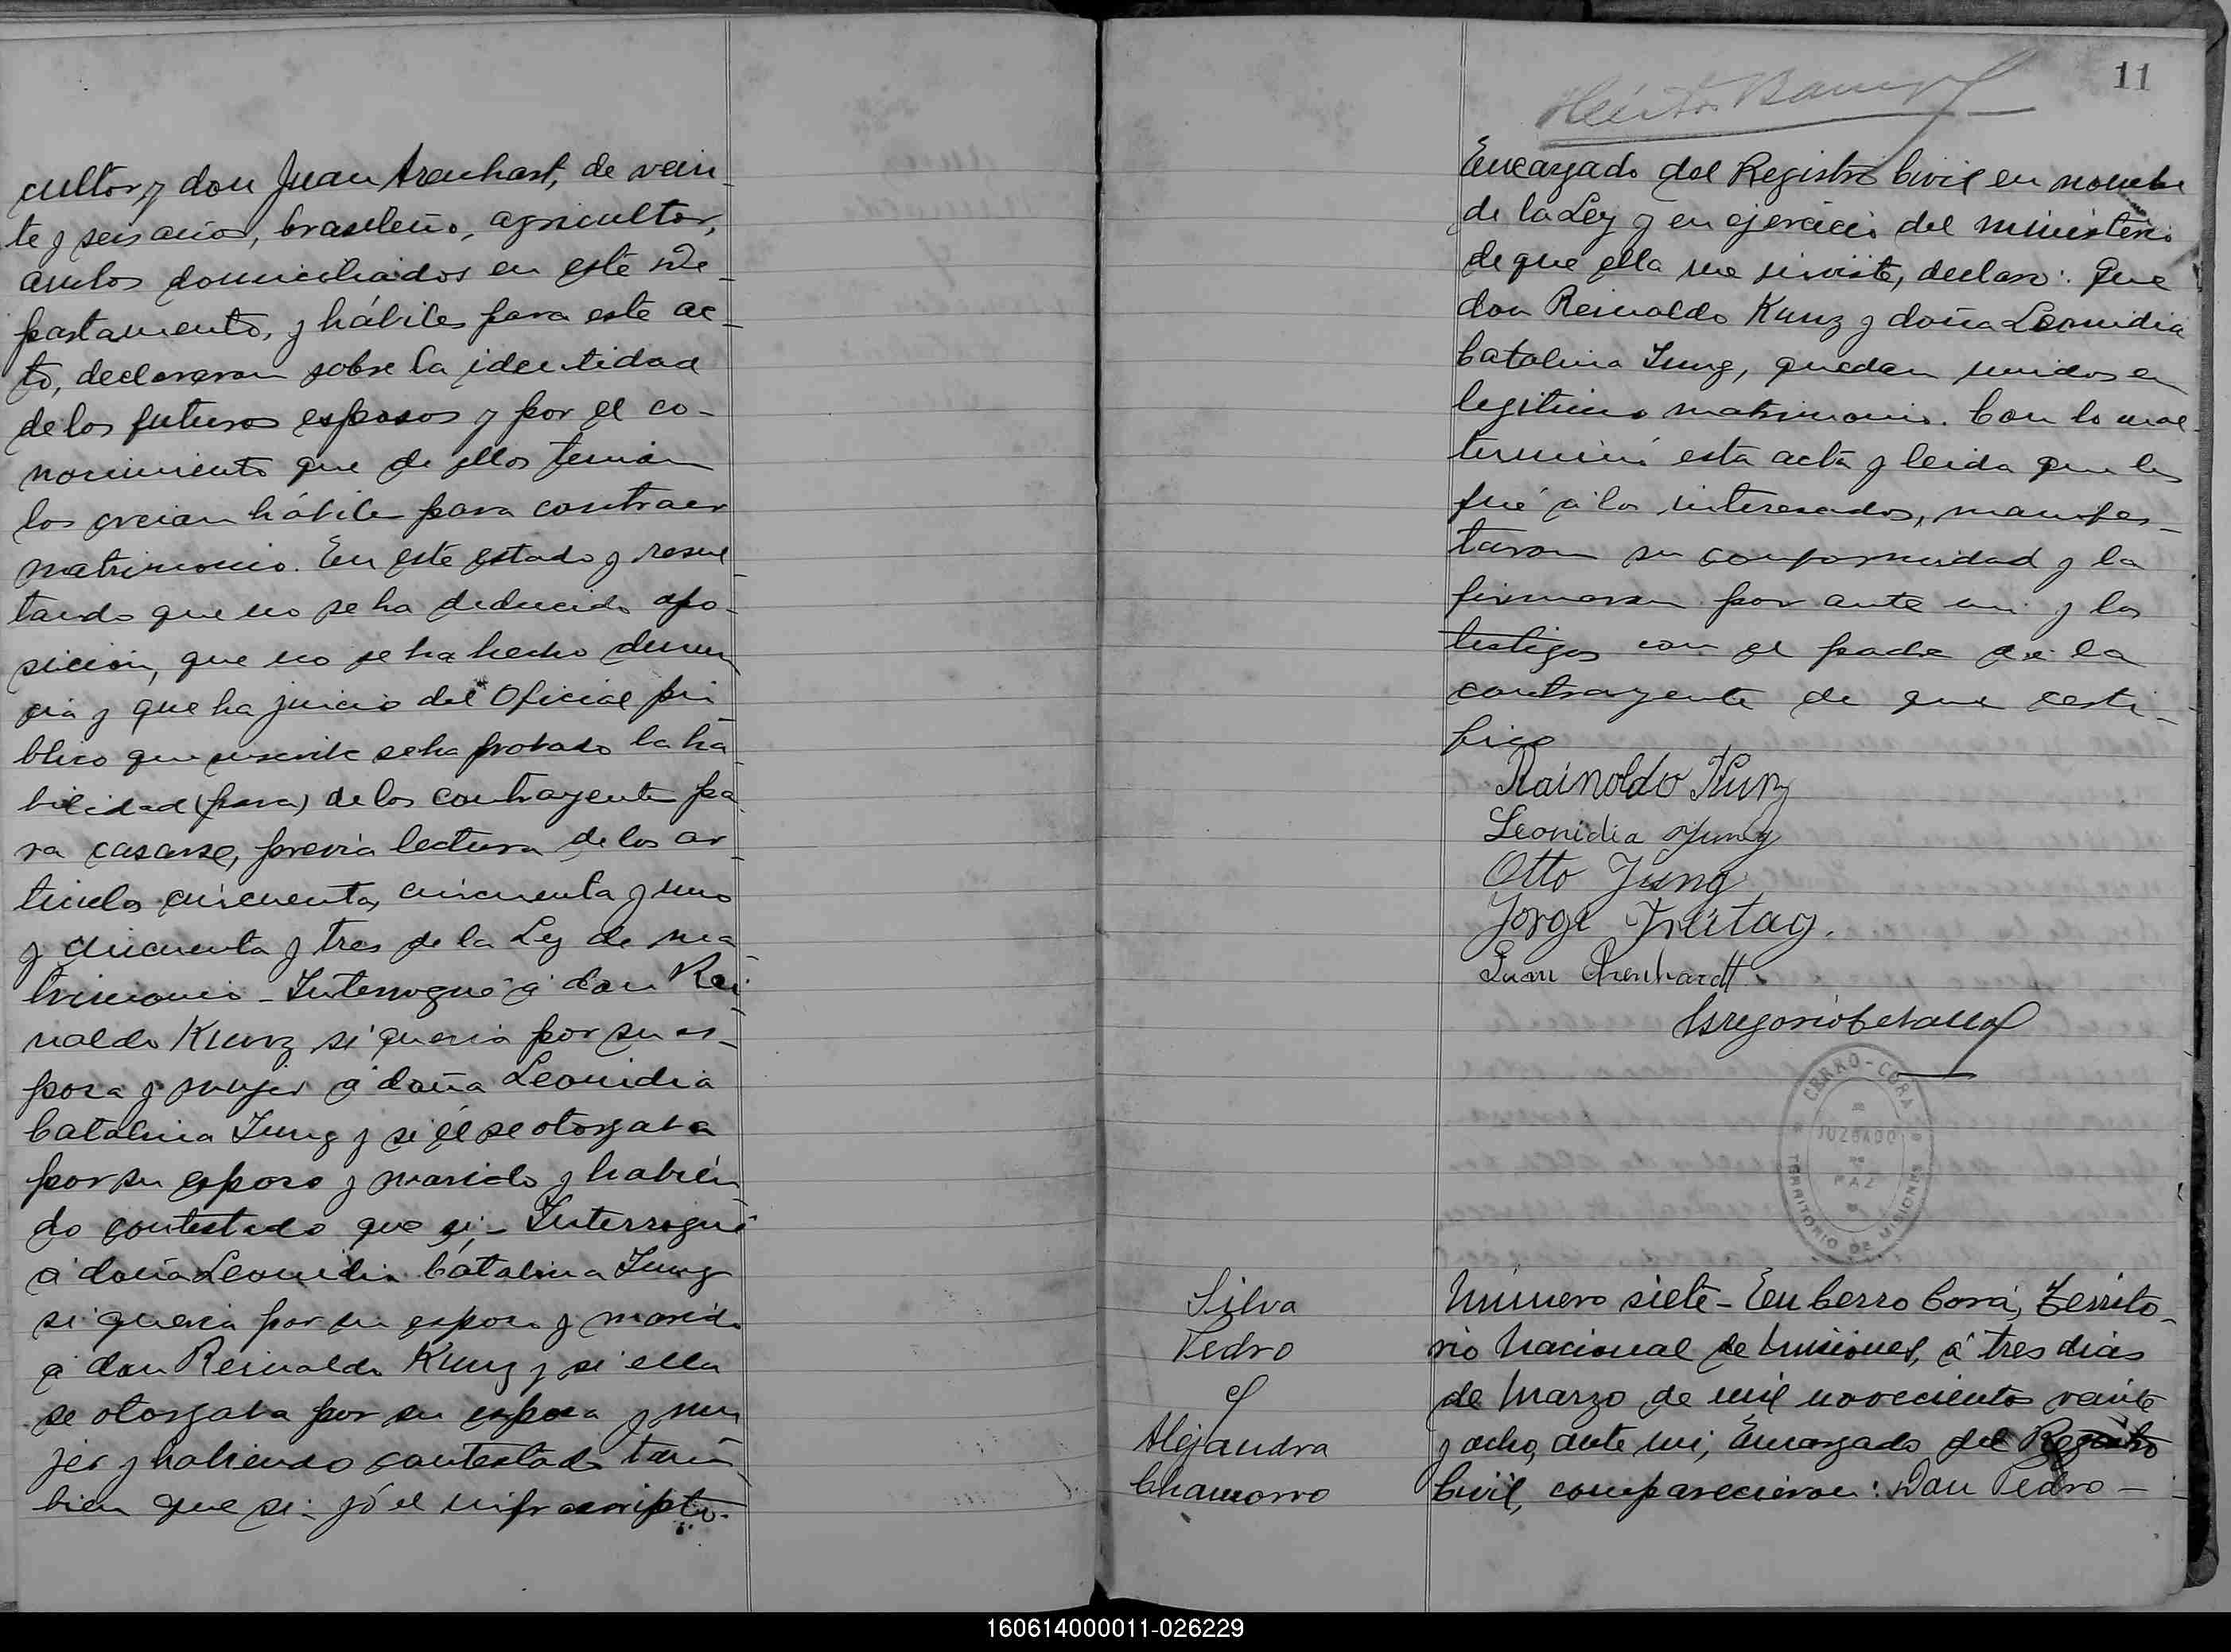 cultor, y don Juan Arenhart, de vein-
te y seis años, brasileño, agricultor,
ambos domiciliados en este De-
partamento, y hábiles para este ac-
to, declararon sobre la identidad
de los futuros esposos y por el co-
nocimiento que de ellos tenian
los creian hábiles para contraer
matrimonio. En este estado y resul-
tando que no se ha deducido opo-
sicion, que no se ha hecho denun-
cia y que ha juicio del Oficial pú-
blico que suscribe se ha probado la ha-
bilidad (para) de los contrayentes pa-
ra casarse, previa lectura de los ar-
ticulos cincuenta, cincuenta y uno
y cincuenta y tres de la Ley de ma-
trimonio - Interrogué á don Rei-
naldo Kunz si queria por su es-
posa y mujer á doña Leonidia
Catalina Jung y si él se otorgaba
por su esposo y marido y habien-
do contestado que si; - Interrogué
á doña Leonidia Catalina Jung
si queria por su esposo y marido
á don Reinaldo Kunz y si ella
se otorgaba por su esposa y mu-
jer y habiendo contestado tam-
bien que si: yó el infrascripto
11
Encargado del Registro Civil en nombre
de la Ley y en ejercicio del ministerio
de que ella me inviste, declaro: Que
don Reinaldo Kunz y doña Leonidia
Catalina Jung, quedan unidos en
legitimo matrimonio. Con lo cual
terminó esta acta y leida que les
fué á los interesados, manifes-
taron su conformidad y la
firmaron por ante mi y los
testigos con el padre de la
contrayente de que certi-
fico
Rainoldo Kunz
Leonidia Jung
Otto Jung
Jorge Freitag.
Juan Arenhardt
Gregorio
CERRO-CORA
JUZGADO
DE
PAZ
TERRITORIO DE MISIONES
Silva
Pedro
y
Alejandra
Chamorro
Número siete - En Cerro Corá, Territo-
rio Nacional de Misiones, á tres dias
de Marzo de mil novecientos veinte
y ocho, ante mi, Encargado del Registro
Civil, comparecieron: Don Pedro -
160614000011-026229